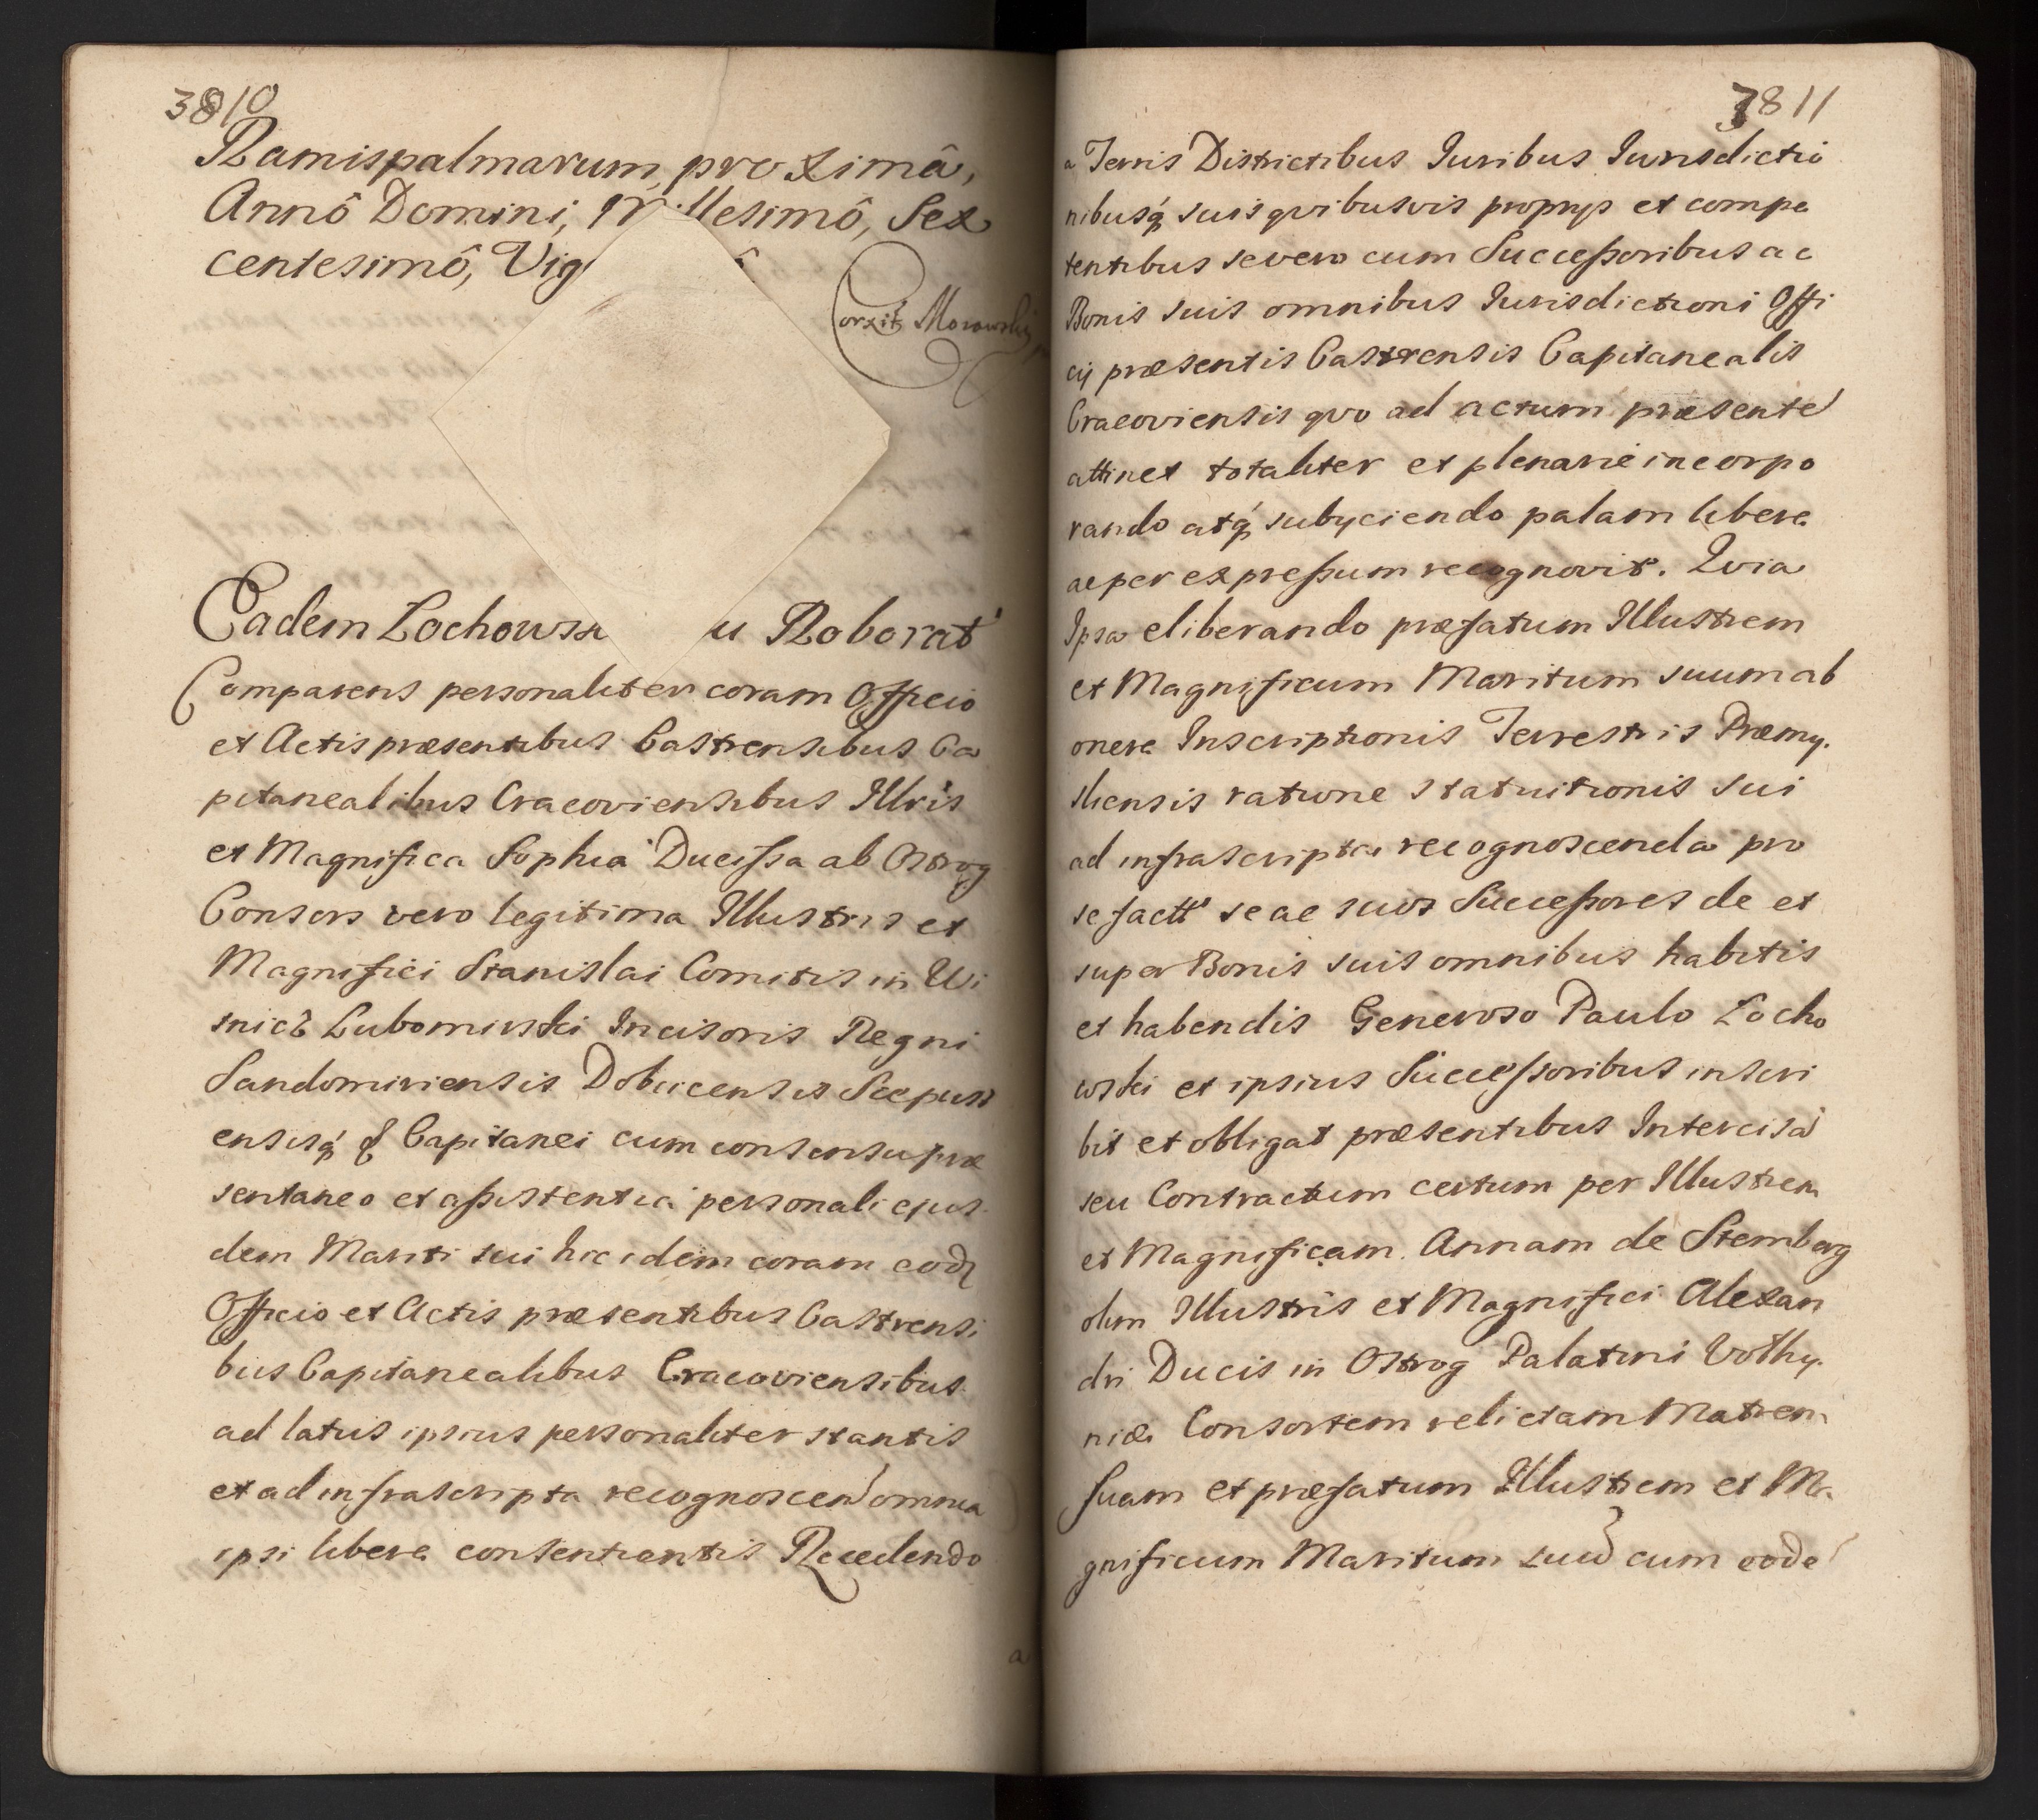 3810
Ramispalmarum, proximâ,
Annô Domini, Millesimô, Sex
centesimô, Vig
Corxit Morawski
Eadem Lochows u Roborat
Comparens personaliter coram Officio
et Actis præsentibus Castrensibus Ca
pitanealibus Cracoviensibus Illris
et Magnifica Sophia Ducissa ab Ostrog
Consors vero legitima Illustris et
Magnifici Stanislai Comitis in Wi
snicz Lubomirski Incisoris Regni
Sandomiriensis Dobcicensis Scepusi
ensisq́ Capitanei cum consensu præ
sentaneo et assistentia personali ejus
dem Mariti sui hic idem coram eod
Officio et Actis præsentibus Castrensi
bus Capitanealibus Cracoviensibus
ad latus ipsius personaliter stantis
et ad infrascripta recognoscen omnia
ipsi libere consentientis Recedendo
a
3811
a Terris Districtibus Iuribus Iurisdictio
nibusq́ suis quibusvis proprys et compe
tentibus se vero cum Successoribus ac
Bonis suis omnibus Iurisdictioni Offi
cij præsentis Castrensis Capitanealis
Cracoviensis quo ad actum præsente
attinet totaliter et plenarie incorpo
rando atq́ subyciendo palam libere
ac per expressum recognovit. Quia
Ipsa eliberando præfatum Illustrem
et Magnificum Maritum suum ab
onere Inscriptionis Terrestris Præmy.
sliensis ratione statuitionis sui
ad infrascripta recognoscenda pro
se factt se ac suos Successores de et
super Bonis suis omnibus habitis
et habendis Generoso Paulo Locho
wski et ipsius Successoribus inscri
bit et obligat præsentibus Intercisa
seu Contractum certum per Illustrem
et Magnificam Annam de Stemberg
olim Illustris et Magnifici Alexan
dri Ducis in Ostrog Palatini Volhy.
niæ Consortem relictam Matrem
suam et præfatum Illustrem et Ma
gnificum Maritum suu cum eode